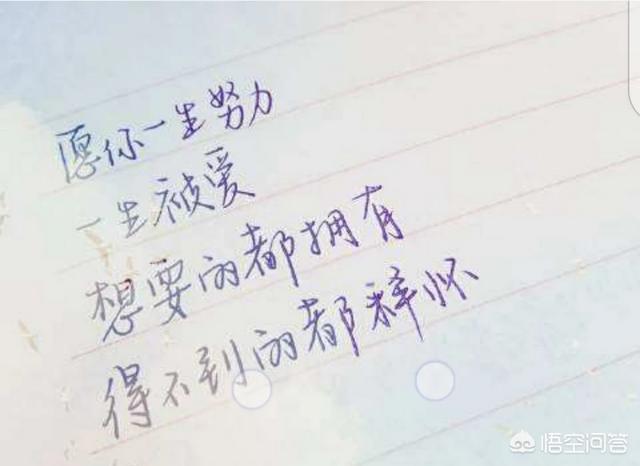 愿你一生努力
一生被爱
想要的都拥有
得不到的都释怀
悟空问答